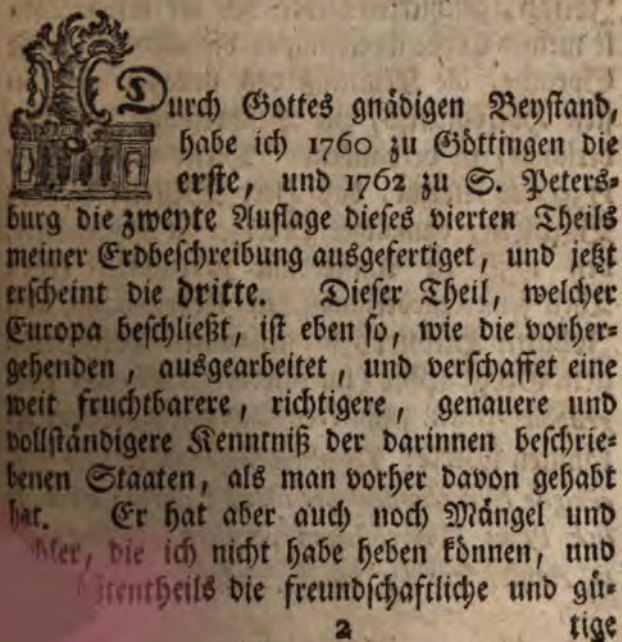 Durch Gottes gnädigen Beystand,
habe ich 1760 zu Göttingen die
erste, und 1762 zu S. Peters-
burg die zweyte Auflage dieses vierten Theils
meiner Erdbeschreibung ausgefertiget, und jetzt
erscheint die dritte. Dieser Theil, welcher
Europa beschließt, ist eben so, wie die vorher-
gehenden, ausgearbeitet, und verschaffet eine
weit fruchtbarere, richtigere, genauere und
vollständigere Kenntniß der darinnen beschrie-
benen Staaten, als man vorher davon gehabt
hat. Er hat aber auch noch Mängel und
die ich nicht habe heben können, und
die freundschaftliche und gü-
2 tige